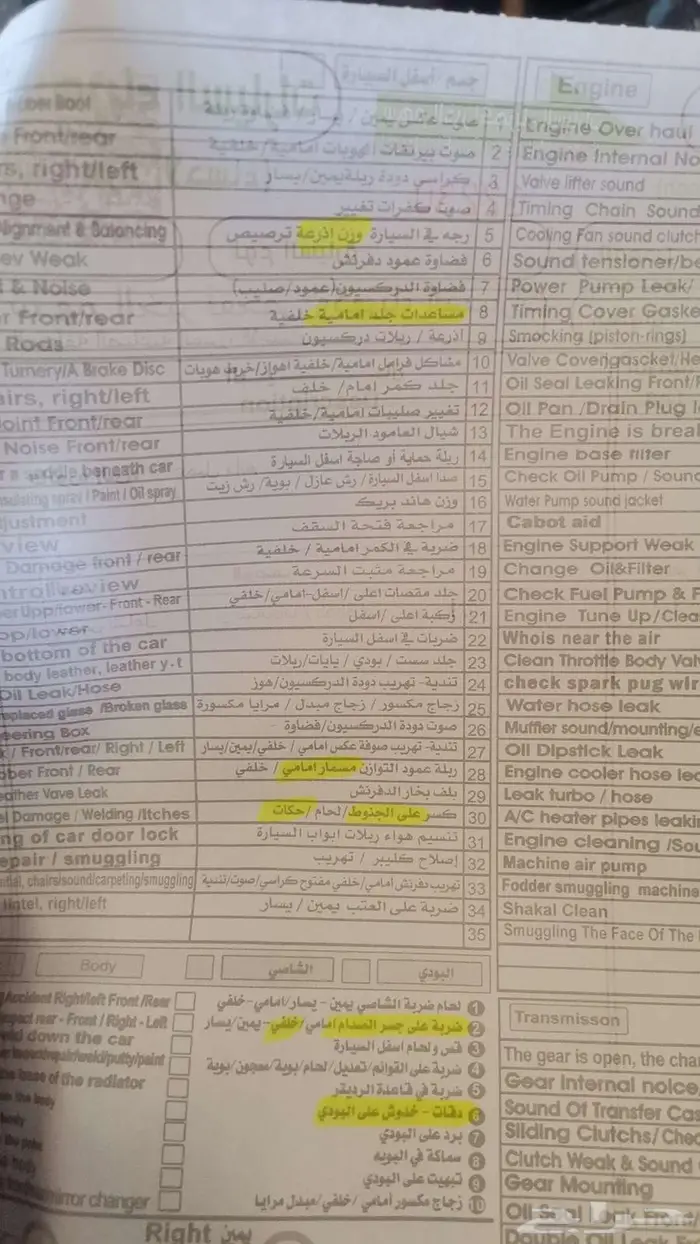 جسم - أسفل السيارة
Engine
1 Engine Over haul
صوت بيرنقات الهوبات امامية/خلفية 2 Engine Internal No
Front/rear
rs, right/left كراسي دودة ريلة يمين/يسار 3 Valve lifter sound
nge صوت كفرات تغيير 4 Timing Chain Sound
Alignment & Balancing رجه في السيارة وزن اذرعة ترصيص 5 Cooling Fan sound clutch
ev Weak فضاوة عمود دفرنش 6 Sound tensioner/be
& Noise فضاوة الدركسيون(عمود/صليب) 7 Power Pump Leak/
r Front/rear مساعدات جلد امامية خلفية 8 Timing Cover Gaske
Rods اذرعة / ريلات دركسيون 9 Smocking (piston-rings)
Turnery/A Brake Disc مشاكل فرامل امامية/خلفية اهواز/خرط هوبات 10 Valve Covengascket/He
airs, right/left جلد كمر امام/ خلف 11 Oil Seal Leaking Front/
Joint Front/rear تغيير صليبات امامية/خلفية 12 Oil Pan /Drain Plug
Noise Front/rear شيال العامود الريلات 13 The Engine is brea
beneath car ريلة حماية أو صاجة اسفل السيارة 14 Engine base filter
Insulating spray / Paint / Oil spray صدا اسفل السيارة / رش عازل / بوية/ رش زيت 15 Check Oil Pump / Soun
وزن هاند بريك 16 Water Pump sound jacket
djustment مراجعة فتحة السقف 17 Cabot aid
view ضربة في الكمر امامية / خلفية 18 Engine Support Weak
Damage front / rear مراجعة مثبت السرعة 19 Change Oil&Filter
ntrol review جلد مقصات اعلى /اسفل-امامي/خلفي 20 Check Fuel Pump & F
er Upp/lower- Front - Rear ركبة اعلى /اسفل 21 Engine Tune Up/Clea
op/lower ضربات في اسفل السيارة 22 Whois near the air
bottom of the car جلد سست / بودي / يايات/ريلات 23 Clean Throttle Body Val
body leather, leather y-t تندية- تهريب دودة الدركسيون/هوز 24 check spark pug wir
Oil Leak/Hose زجاج مكسور / زجاج مبدل / مرايا مكسورة 25 Water hose leak
replaced glass /Broken glass صوت دودة الدركسيون/فضاوة 26 Muffler sound/mounting/e
eering Box تندية- تهريب صوفة عكس امامي / خلفي/يمين/يسار 27 Oil Dipstick Leak
/ Front/rear/ Right / Left ريلة عمود التوازن مسمار امامي / خلفي 28 Engine cooler hose lea
ber Front / Rear بلف بخار الدفرنش 29 Leak turbo / hose
eather Vave Leak كسر على الجنوط/لحام /حكات 30 A/C heater pipes leaki
el Damage / Welding /Itches تنسيم هواء ريلات ابواب السيارة 31 Engine cleaning /Sou
ng of car door lock إصلاح كليبر / تهريب 32 Machine air pump
epair / smuggling تهريب دفرنش أمامي/خلفي مفتوح كراسي/صوت/تندية 33 Fodder smuggling machine
chairs/sound/carpeting/smuggling ضربة على العتب يمين / يسار 34 Shakal Clean
lintel, right/left 35 Smuggling The Face Of The
Body
الشاصي
البودي
Accident Right/left Front /Rear
1 لحام ضربة الشاصي يمين - يسار/امامي-خلفي
rear - Front / Right - Left
2 ضربة على جسر الصدام امامي/خلفي-يمين/يسار
Transmisson
ld down the car
3 قص ولحام اسفل السيارة
weld/putty/paint
4 ضربة على القوائم/تعديل/لحام/بوية/معجون/بوية
The gear is open, the cha
base of the radiator
5 ضربة في قاعدة الرديتر
Gear Internal noice,
6 دقات - خدوش على البودي
Sound Of Transfer Cas
7 برد على البودي
Sliding Clutchs/Chec
8 سماكة في البويه
Clutch Weak & Sound
9 تبهيت على البودي
Gear Mounting
mirror changer
10 زجاج مكسور أمامي /خلفي/مبدل مرايا
Oil Seal Leak Front/
Right يمين
Double Oil Leak